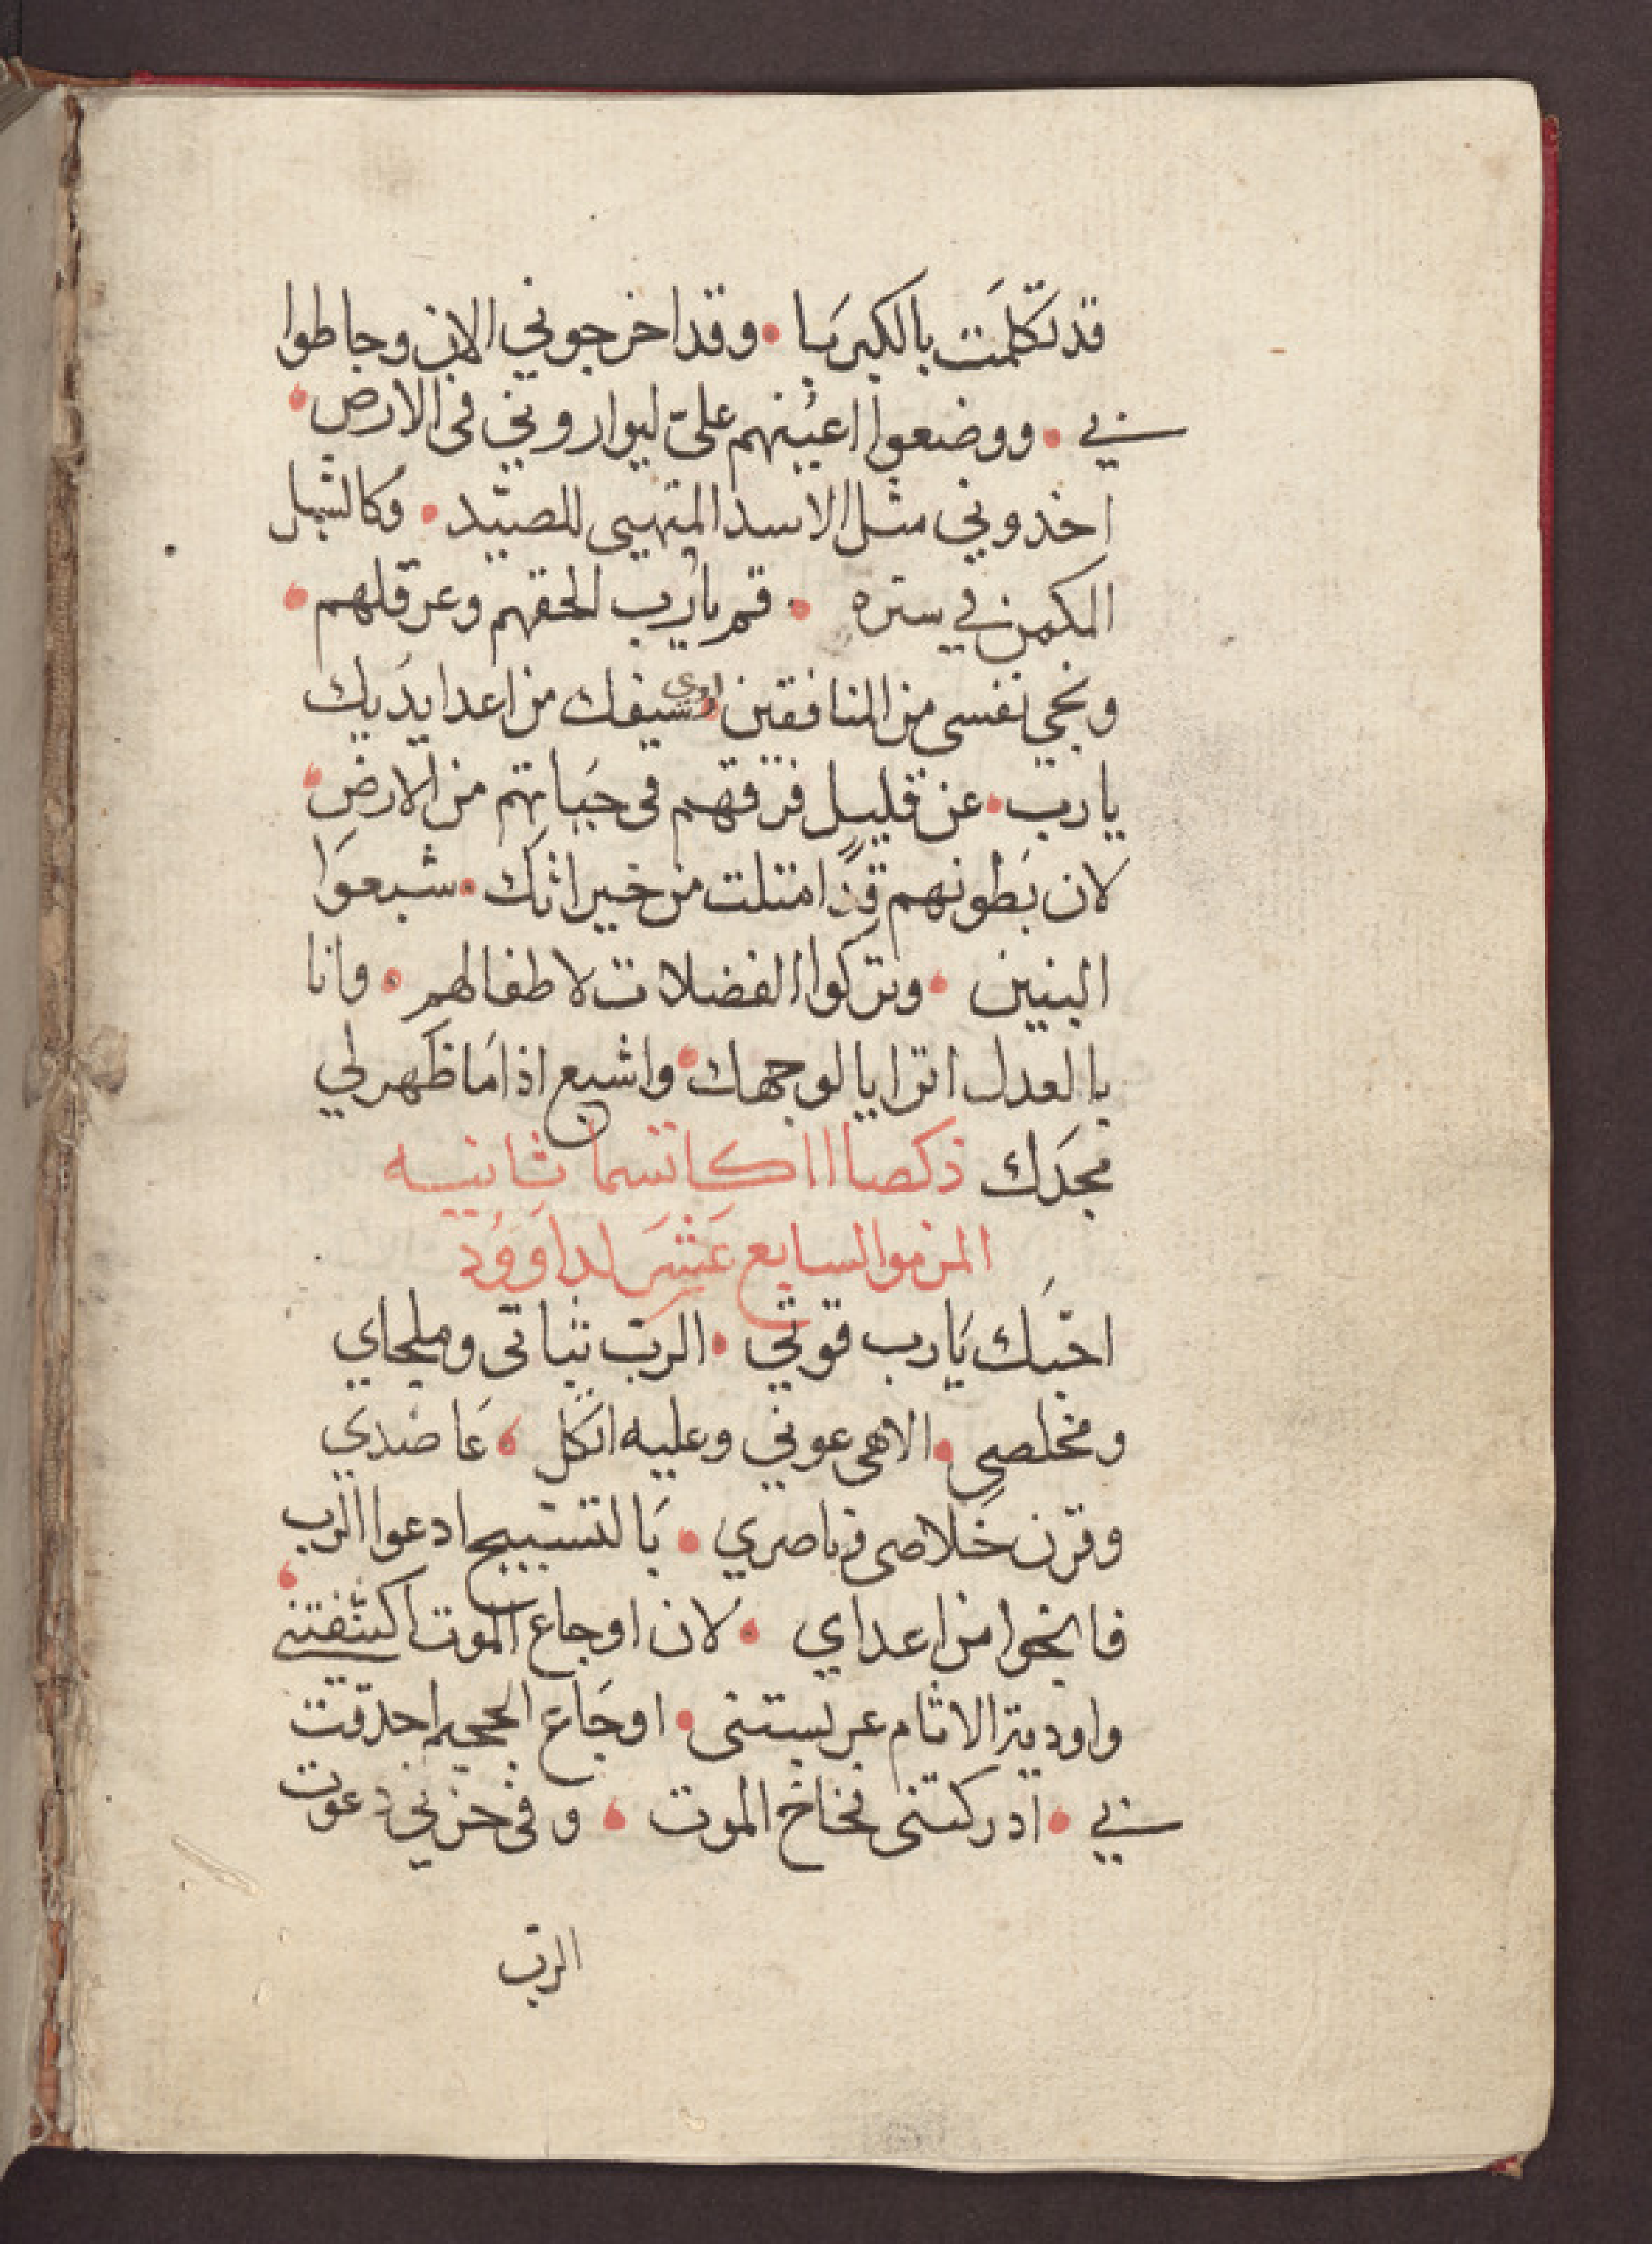 قد تكلمت بالكبريا • وقد اخرجوني الان وحاطوا
بي • ووضعوا اعينهم عليّ ليواروني في الارض •
اخدوني مثل الاسد المتهيى للصيد • وكالشبل
المكمن في ستره • قم يا رب الحقهم وعرقلهم •
ونجي نفسى من المنافقين • سيفك من اعدا يديك
يا رب • عن قليل فرقهم فى حياتهم من الارض •
لان بطونهم قد امتلت من خيراتك • شبعوا
البنين • وتركوا الفضلات لاطفالهم • وانا
بالعدل اترايا لوجهك • واشبع اذا ما ظهر لي
مجدك ذكصا اا كاتسما ثانيه
المزموا السابع عشر لداوود
احبك يا رب قوتي • الرب ثباتى وملجاي
ومخلصي • الاهى عوني وعليه اتكل • عاضدي
وقرن خلاصى وناصري • بالتسبيح ادعوا الرب •
فانجوا من اعداي • لان اوجاع الموت اكتنفتني
واودية الاثام عربستنى • اوجاع الجحيم احدقت
بي • ادركتنى فخاخ الموت • وفى حزني دعوت
الرب